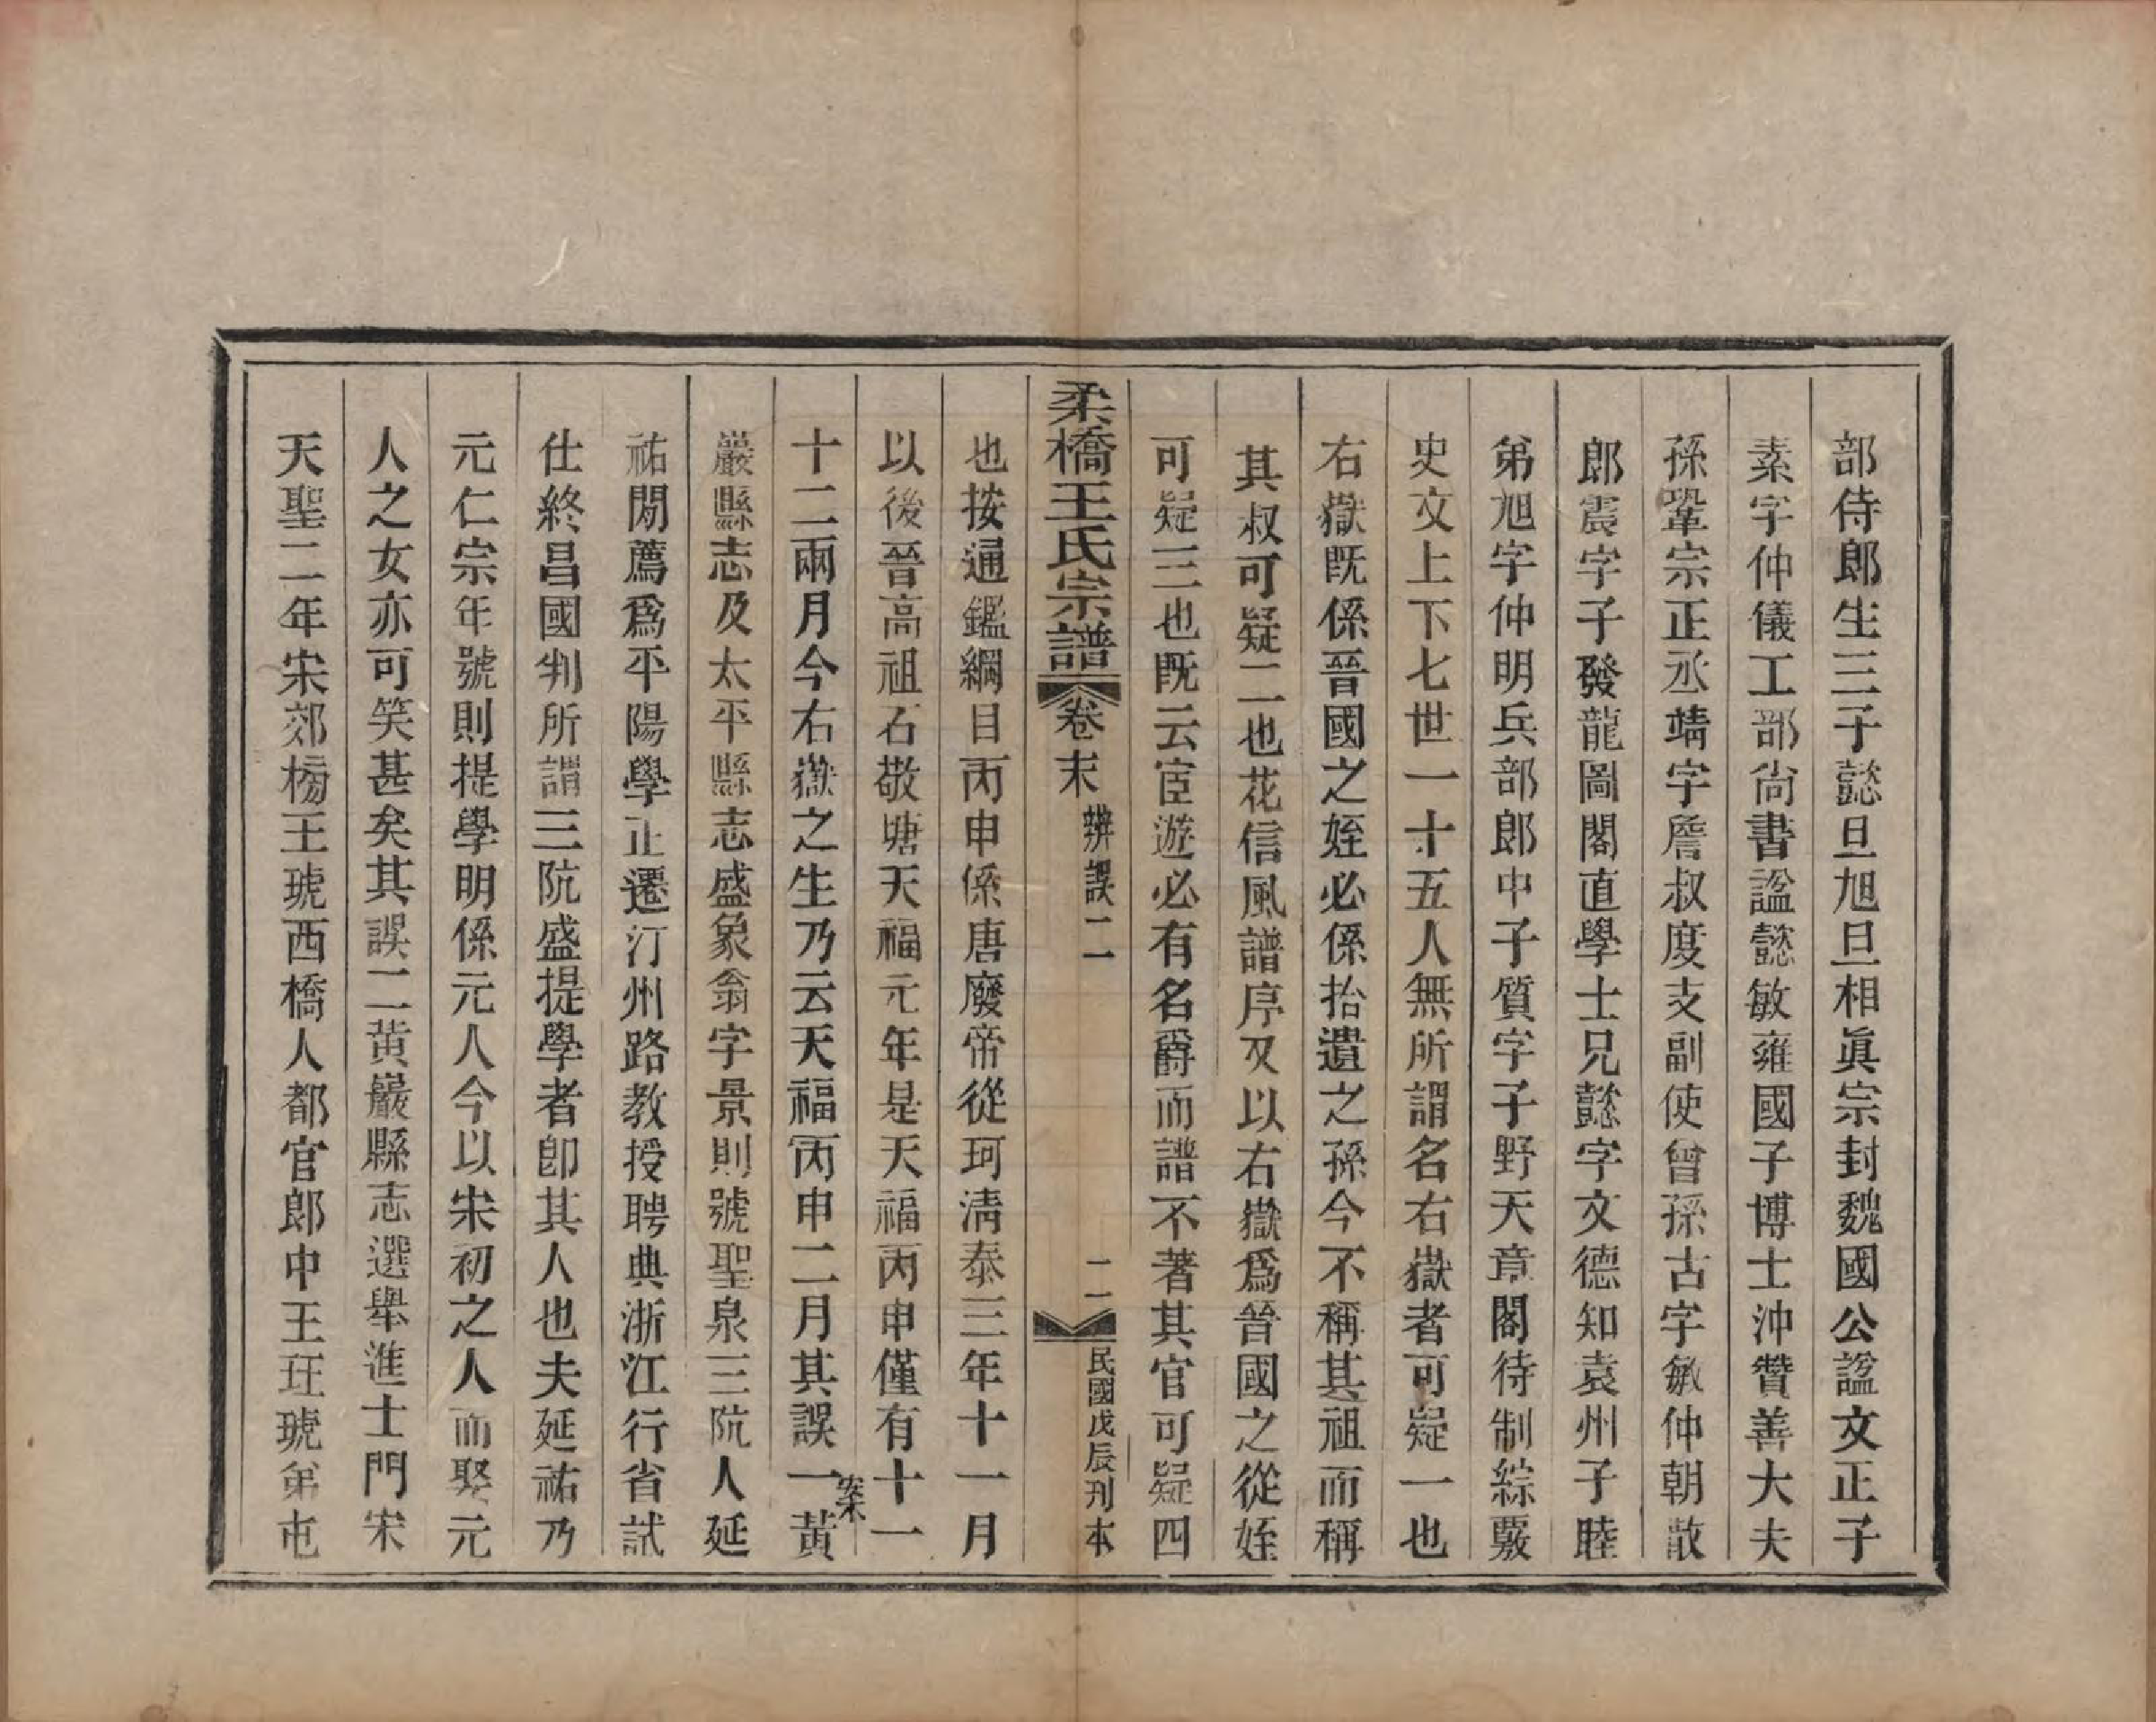 部侍郎生三子懿旦旭旦相眞宗封魏國公諡文正子
素字仲儀工部尚書諡懿敏雍國子博士沖贊善大夫
孫鞏宗正丞靖字詹叔度支副使曾孫古字敏仲朝散
郎震字子發龍圖閣直學士兄懿字文德知袁州子睦
弟旭字仲明兵部郎中子質字子野天章閣待制綜覈
史文上下七世一十五人無所謂名右嶽者可疑一也
右嶽既係晉國之姪必係抬遺之孫今不稱其祖而稱
其叔可疑二也花信風譜序又以右嶽爲晉國之從姪
可疑三也既云宦遊必有名爵而譜不著其官可疑四
柔橋王氏宗譜 卷末 辨誤二 二 民國戊辰刊本
也按通鑑綱目丙申係唐廢帝從珂淸泰三年十一月
以後晉高祖石敬瑭天福元年是天福丙申僅有十一
十二兩月今右嶽之生乃云天福丙申二月其誤一案黃
巖縣志及太平縣志盛象翁字景則號聖泉三阬人延
祐閒薦爲平陽學正遷汀州路教授聘典浙江行省試
仕終昌國判所謂三阬盛提學者卽其人也夫延祐乃
元仁宗年號則提學明係元人今以宋初之人而娶元
人之女亦可笑甚矣其誤二黃巖縣志選舉進士門宋
天聖二年宋郊榜王琥西橋人都官郎中王玨琥弟屯